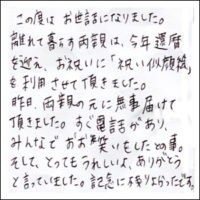 この度は お世話になりました。
離れて暮らす両親は、今年還暦
を迎え、お祝いに「祝い似顔絵」
を利用させて頂きました。
昨日、両親の元に無事届けて
頂きました。すぐ電話があり、
みんなで おお笑いをしたとの事。
そして、とってもうれしいよ、ありがとう
と言っていました。記念に なりよかったです。